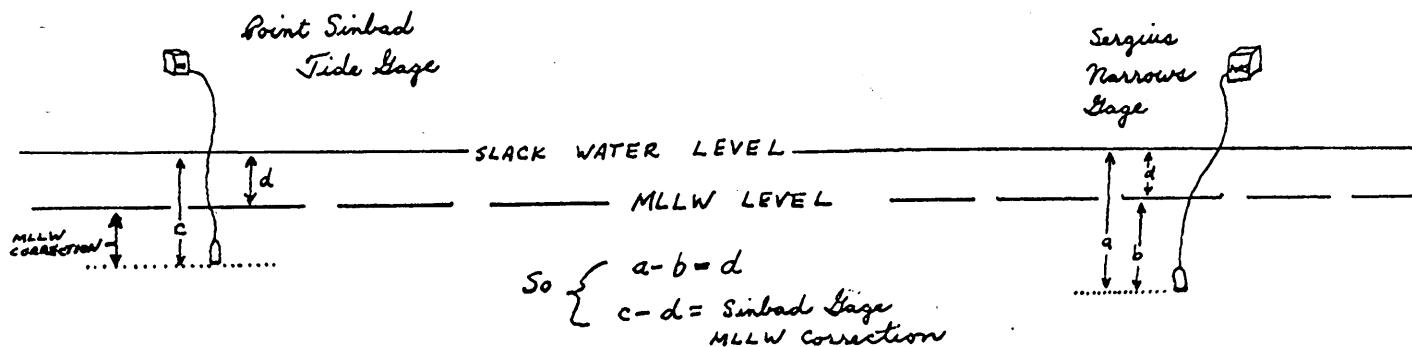 Point Sinbad
Tide Gage
Sergius
Narrows
Gage
SLACK WATER LEVEL
d
d
MLLW LEVEL
c
a
b
MLLW
CORRECTION
So { a - b = d
c - d = Sinbad Gage
MLLW Correction